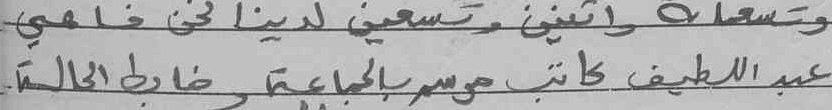 وتسعمائة واثنين وتسعين لدينا نحن فاهمي
عبد اللطيف كاتب موسر بالجماعة وضابط الحالة